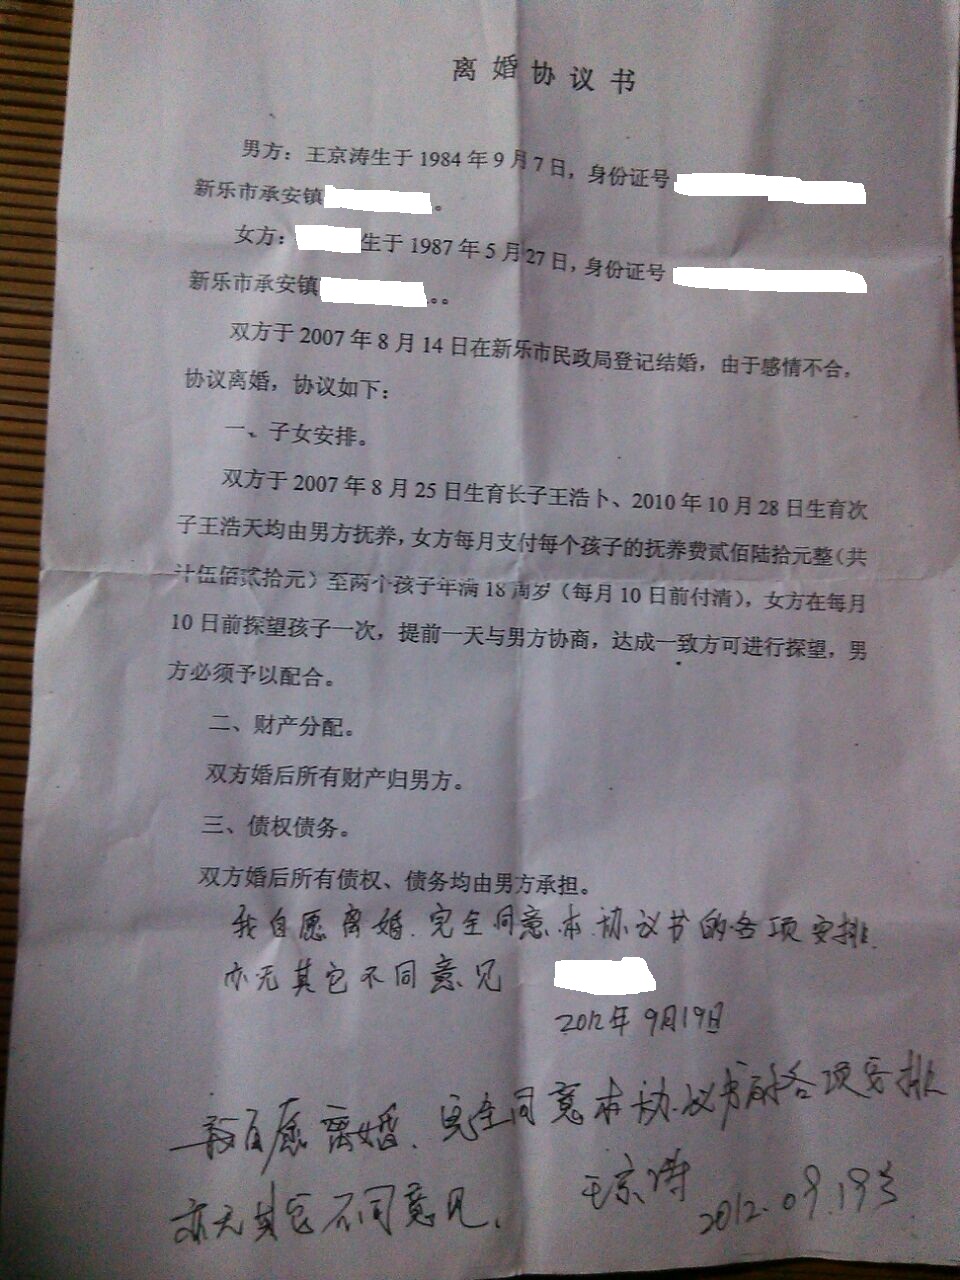 离婚协议书
男方：王京涛生于1984年9月7日，身份证号
新乐市承安镇。
女方：生于1987年5月27日，身份证号
新乐市承安镇。。
双方于2007年8月14日在新乐市民政局登记结婚，由于感情不合，
协议离婚，协议如下：
一、子女安排。
双方于2007年8月25日生育长子王浩卜、2010年10月28日生育次
子王浩天均由男方抚养，女方每月支付每个孩子的抚养费贰佰陆拾元整（共
计伍佰贰拾元）至两个孩子年满18周岁（每月10日前付清），女方在每月
10日前探望孩子一次，提前一天与男方协商，达成一致方可进行探望，男
方必须予以配合。
二、财产分配。
双方婚后所有财产归男方。
三、债权债务。
双方婚后所有债权、债务均由男方承担。
我自愿离婚.完全同意本协议书的各项安排.
亦无其它不同意见
2012年9月19日
我自愿离婚.完全同意本协议书的各项安排
亦无其它不同意见.
王京涛 2012.09.19号